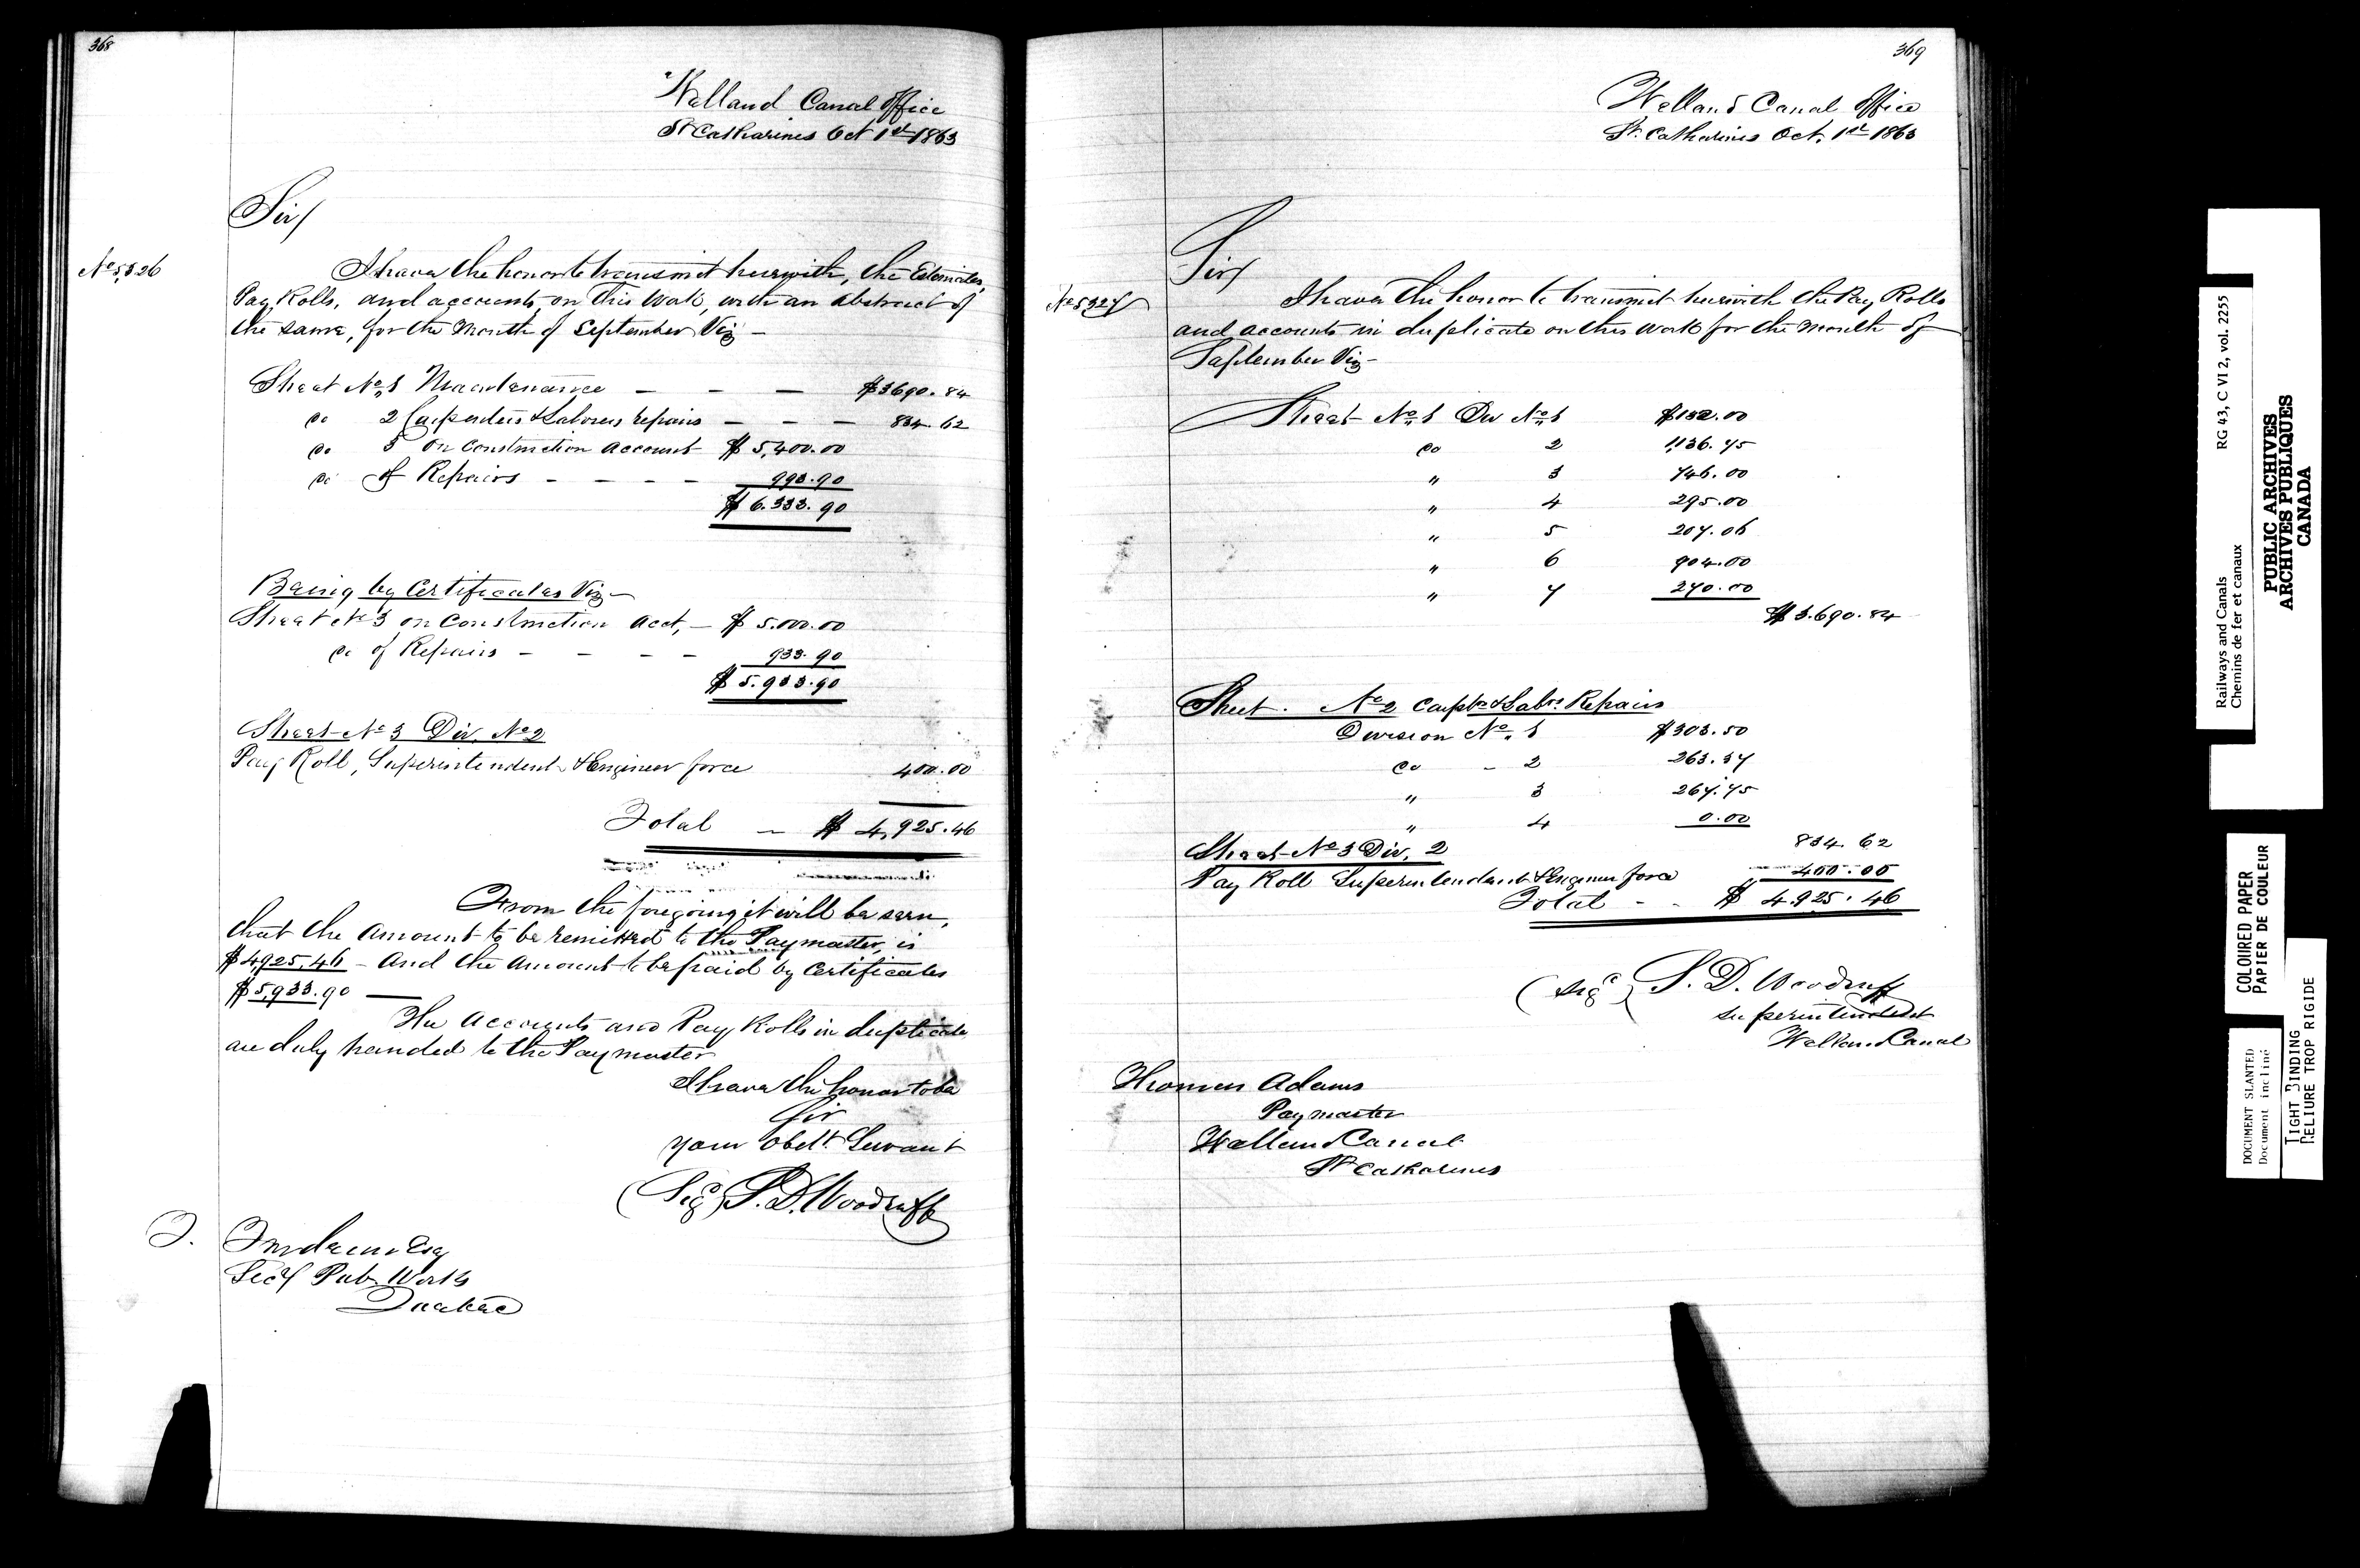 368
Welland Canal Office
St Catharines Oct 1st 1863
Sir/
No 5326
I have the honor to transmit herewith, the Estimates,
Pay Rolls, and accounts, on this Work, with an abstract of
the same, for the Month of September Viz –
Sheet No 1 Maintenance – – – $3690.84
Do 2 Carpenters & Laborers repairs – – – 834.62
Do 3 On Construction Account $5,400.00
Do of Repairs – – – – 993.90
$6.333.90
Being by Certificates Viz –
Sheet No 3 on Construction Acct, – $5.000.00
Do of Repairs – – – – 933.90
$5.933.90
Sheet No 3 Div. No 2
Pay Roll, Superintendent & Engineer force 400.00
Total – $4,925.46
From the foregoing it will be seen,
that the Amount to be remitted to the Paymaster, is
$4,925.46 – And the Amount to be paid by Certificates
$5,933.90 —
The Accounts and Pay Rolls in duplicate
are duly handed to the Paymaster
I have the honor to be
Sir
your Obedt. Servant
(Sigd) S. D. Woodruff
T. Trudeau Esq
Secy Pub. Works
Quebec
369
Welland Canal Office
St. Catharines Oct. 1st 1863
Sir/
No 5327
I have the honor to transmit herewith the Pay Rolls
and accounts in duplicate on this Work for the month of
September Viz –
Sheet No 1 Div No 1 $132.00
Do 2 1,136.75
" 3 746.00
" 4 295.00
" 5 207.06
" 6 904.00
" 7 270.00
$3.690.84
Sheet. No 2 Carptrs & Labrs Repairs
Division No 1 $303.50
Do – 2 263.37
" 3 267.75
" 4 0.00
834.62
Sheet No 3 Div. 2
Pay Roll Superintendent & Engineer force 400.00
Total – – $4.925.46
(Sigd) S. D. Woodruff
Superintendent
Welland Canal
Thomas Adams
Paymaster
Welland Canal
St Catharines
RG 43, C VI 2, vol. 2255
Railways and Canals
Chemins de fer et canaux
PUBLIC ARCHIVES
ARCHIVES PUBLIQUES
CANADA
COLOURED PAPER
PAPIER DE COULEUR
DOCUMENT SLANTED
Document incliné
TIGHT BINDING
RELIURE TROP RIGIDE